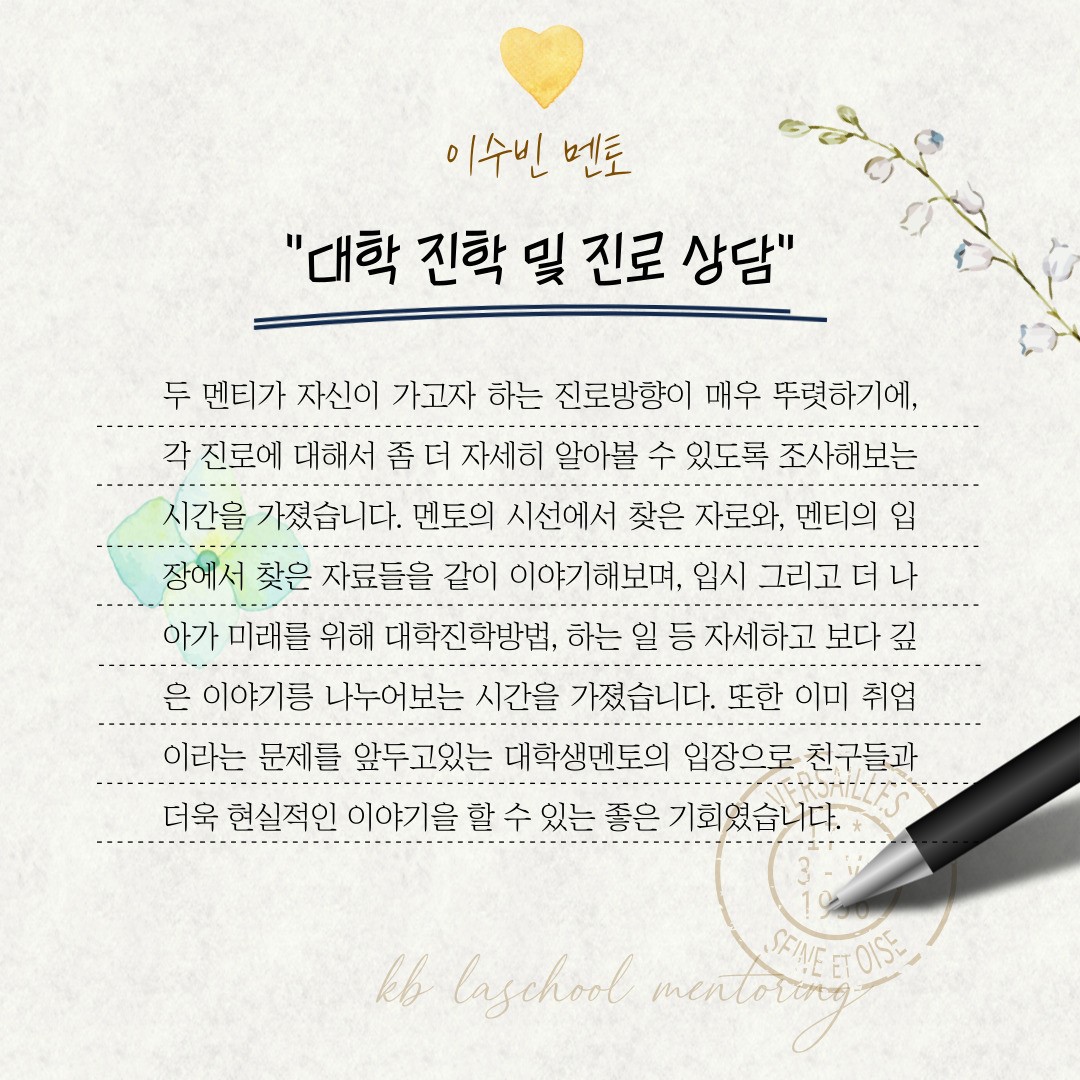 이수빈 멘토
"대학 진학 및 진로 상담"
두 멘티가 자신이 가고자 하는 진로방향이 매우 뚜렷하기에,
각 진로에 대해서 좀 더 자세히 알아볼 수 있도록 조사해보는
시간을 가졌습니다. 멘토의 시선에서 찾은 자로와, 멘티의 입
장에서 찾은 자료들을 같이 이야기해보며, 입시 그리고 더 나
아가 미래를 위해 대학진학방법, 하는 일 등 자세하고 보다 깊
은 이야기릉 나누어보는 시간을 가졌습니다. 또한 이미 취업
이라는 문제를 앞두고있는 대학생멘토의 입장으로 친구들과
더욱 현실적인 이야기을 할 수 있는 좋은 기회였습니다.
VERSAILLES
17 *
3 -
SEINE ET OISE
kb laschool mentoring